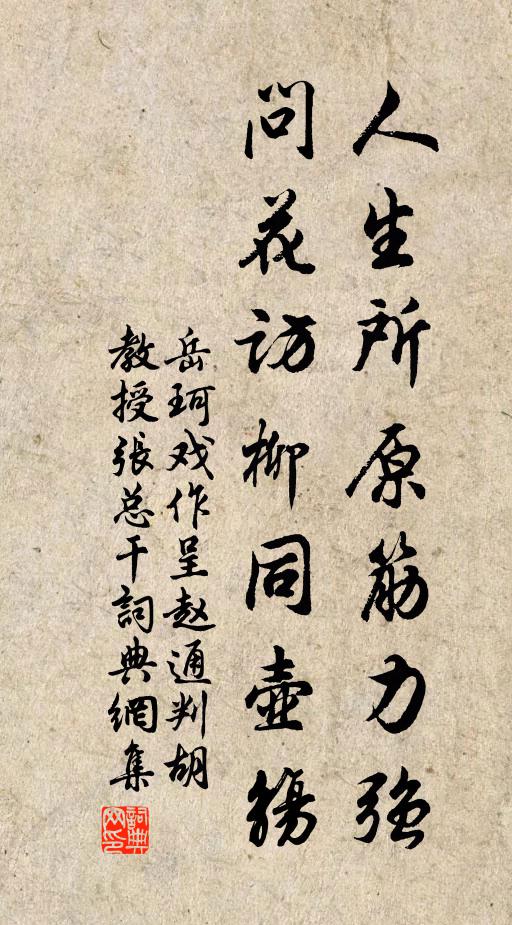 人生所原筋力强
問花訪柳同壺觴
岳珂戏作呈赵通判胡
教授張总干詞典網集
詞典
网印